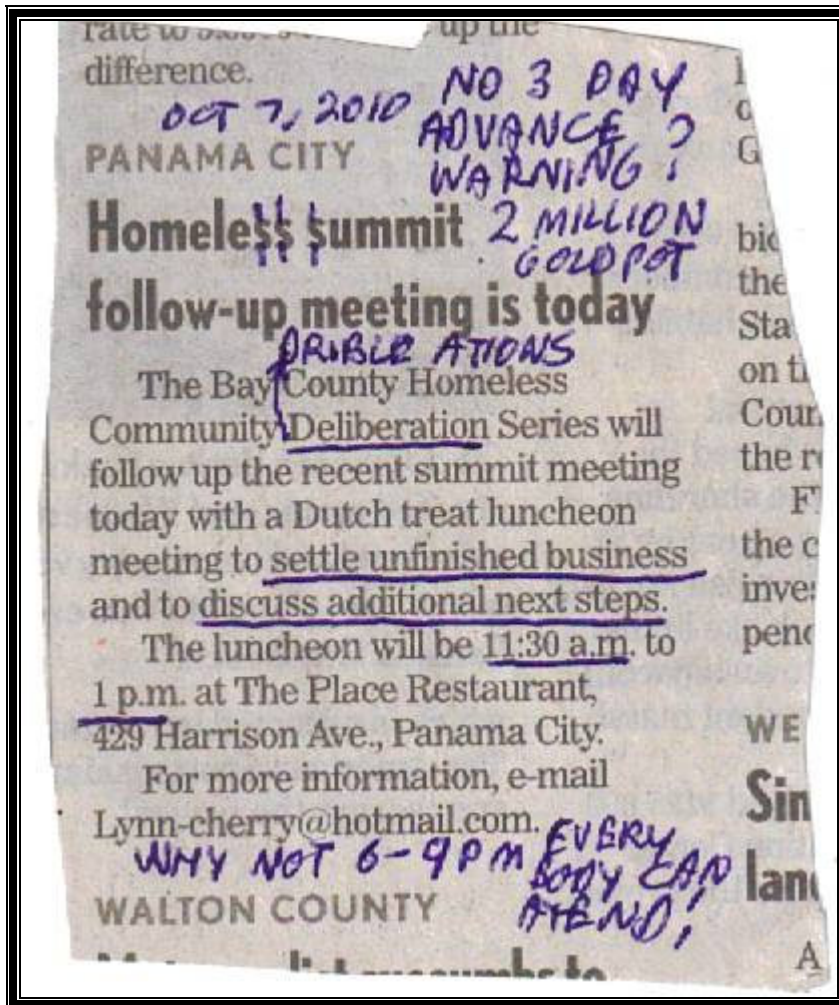 difference.
OCT 7, 2010
NO 3 DAY
ADVANCE ?
WARNING ?
PANAMA CITY
Homeless summit
2 MILLION
GOLD POT
follow-up meeting is today
DRIBLE ATIONS
The Bay County Homeless
Community Deliberation Series will
follow up the recent summit meeting
today with a Dutch treat luncheon
meeting to settle unfinished business
and to discuss additional next steps.
The luncheon will be 11:30 a.m. to
1 p.m. at The Place Restaurant,
429 Harrison Ave., Panama City.
For more information, e-mail
Lynn-cherry@hotmail.com.
WHY NOT 6-9 PM EVERY
BODY CAN
ATEND!
WALTON COUNTY
the
on
the
the
WE
A